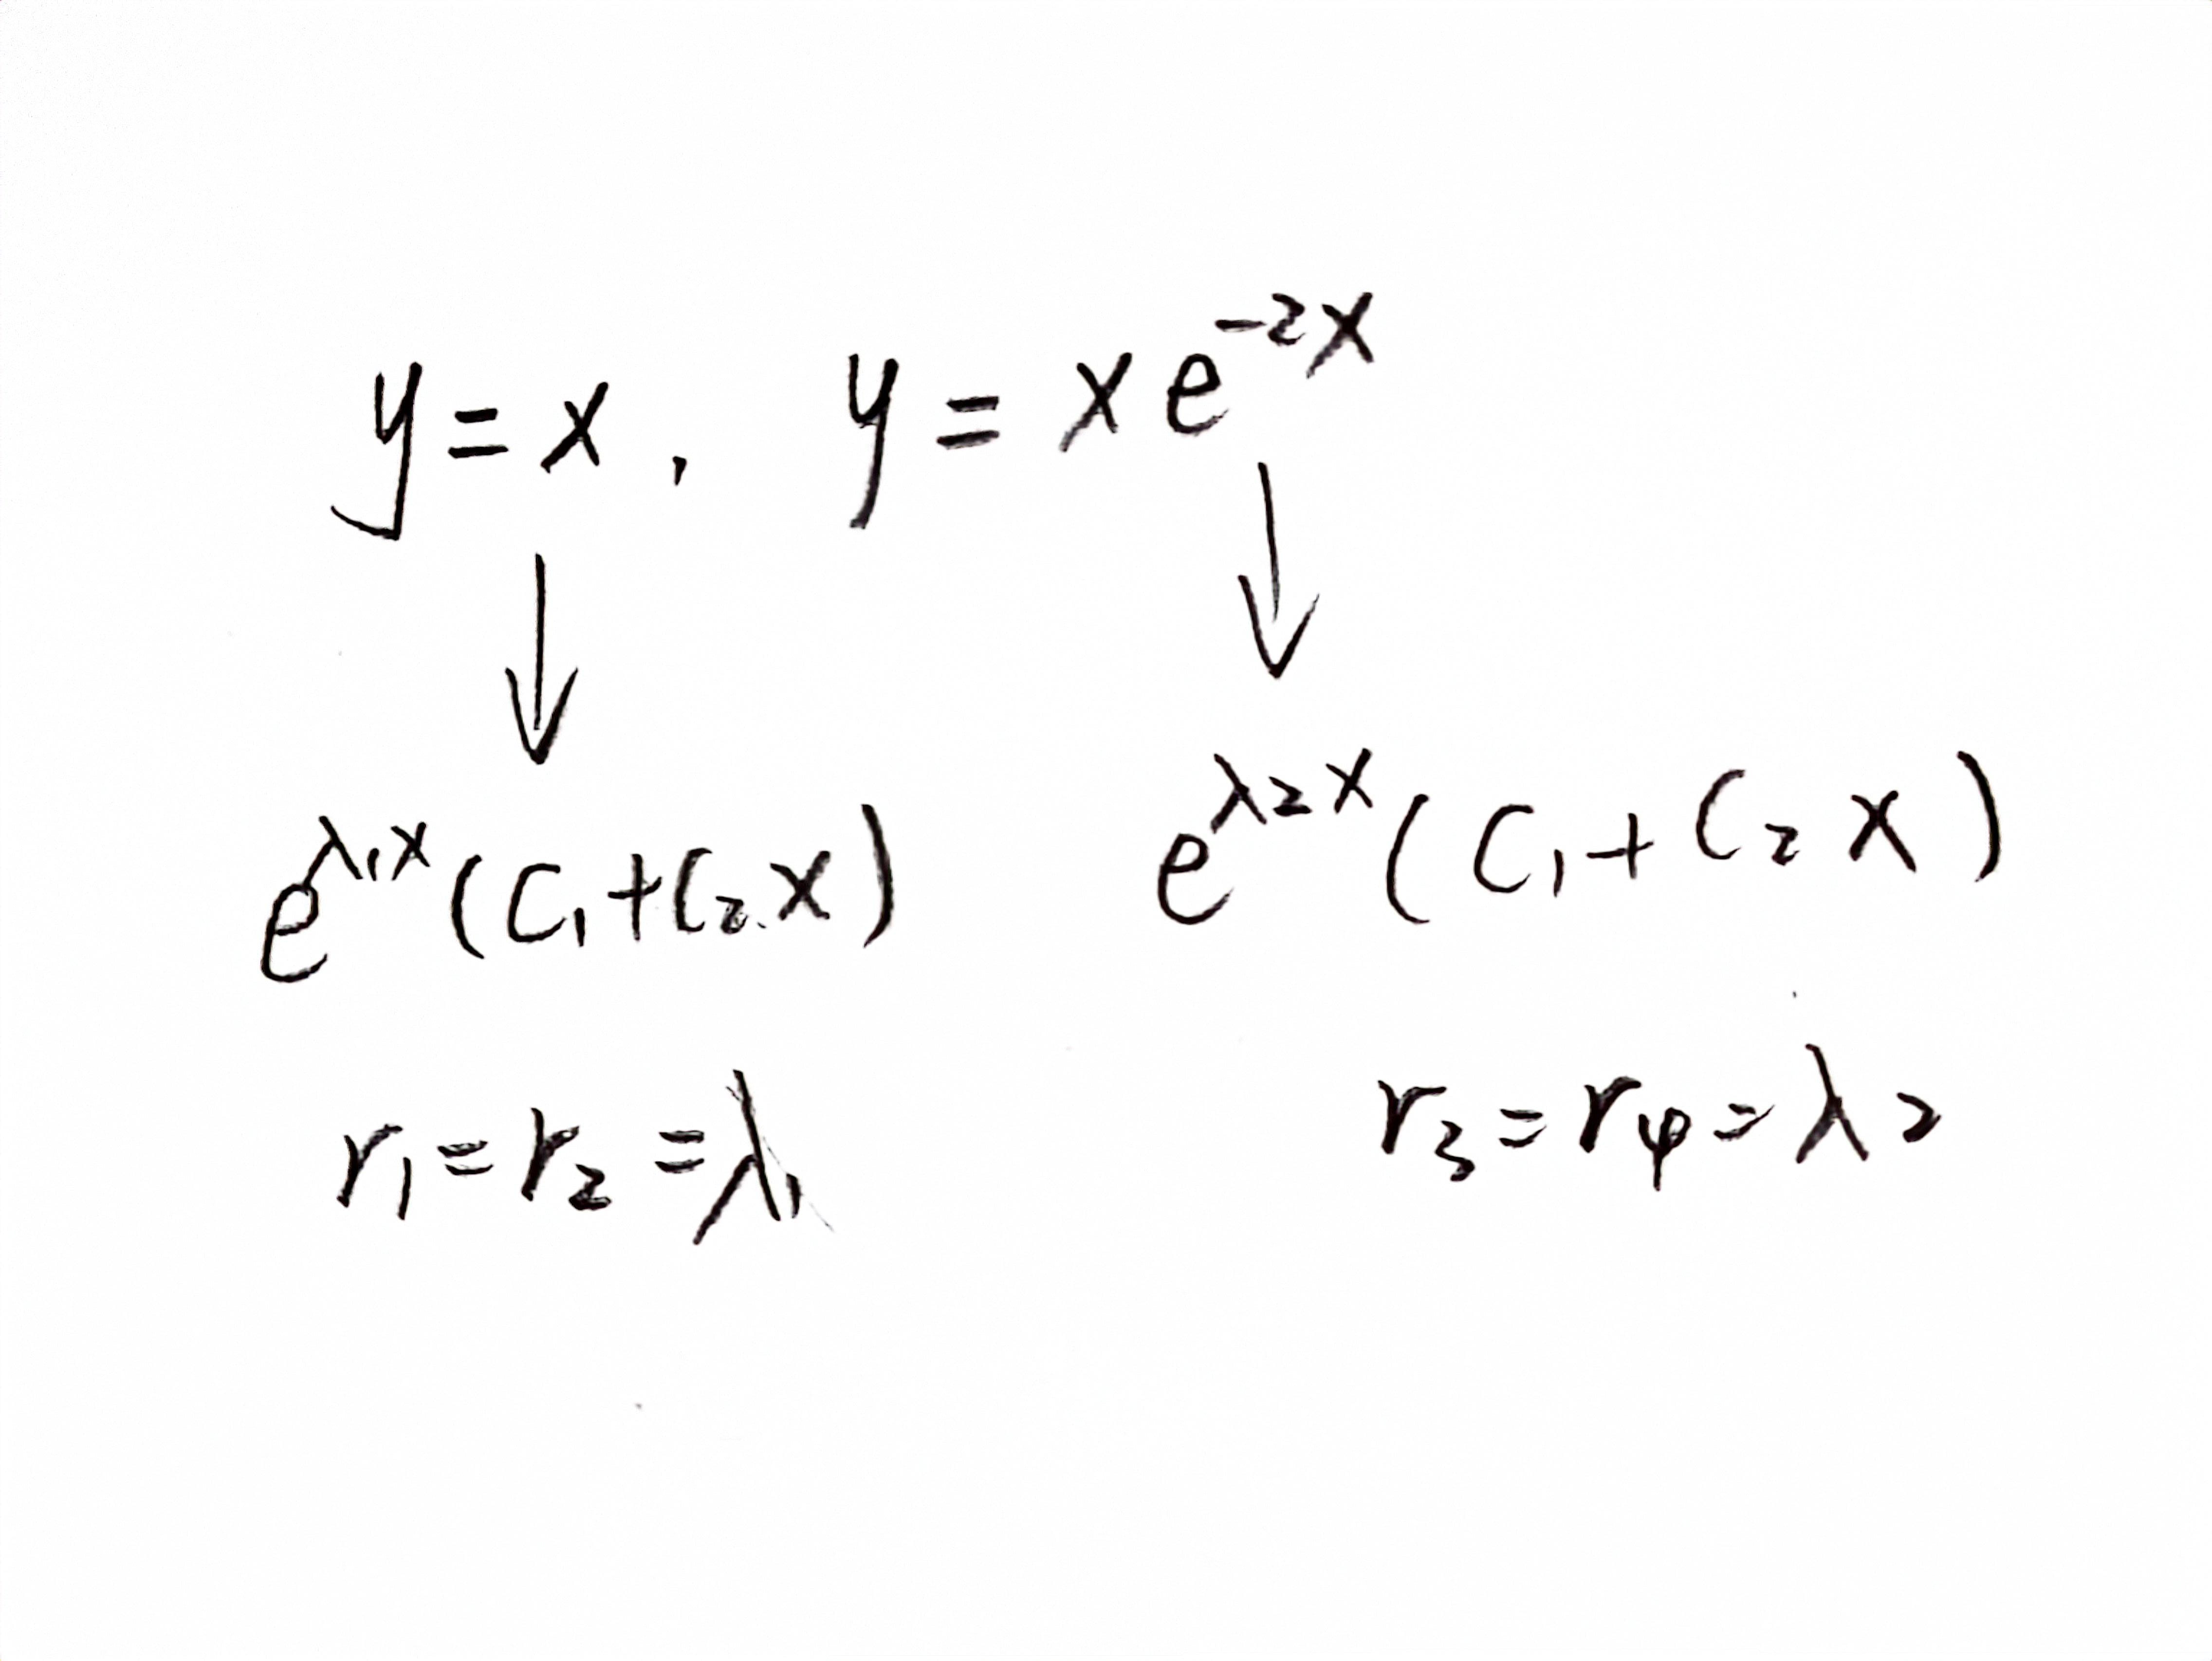 y = x , y = x e^{-2x}
↓ ↓
e^{λ₁x} (C₁ + C₂ x) e^{λ₂x} (C₁ + C₂ x)
r₁ = r₂ = λ₁ r₃ = r₄ = λ₂